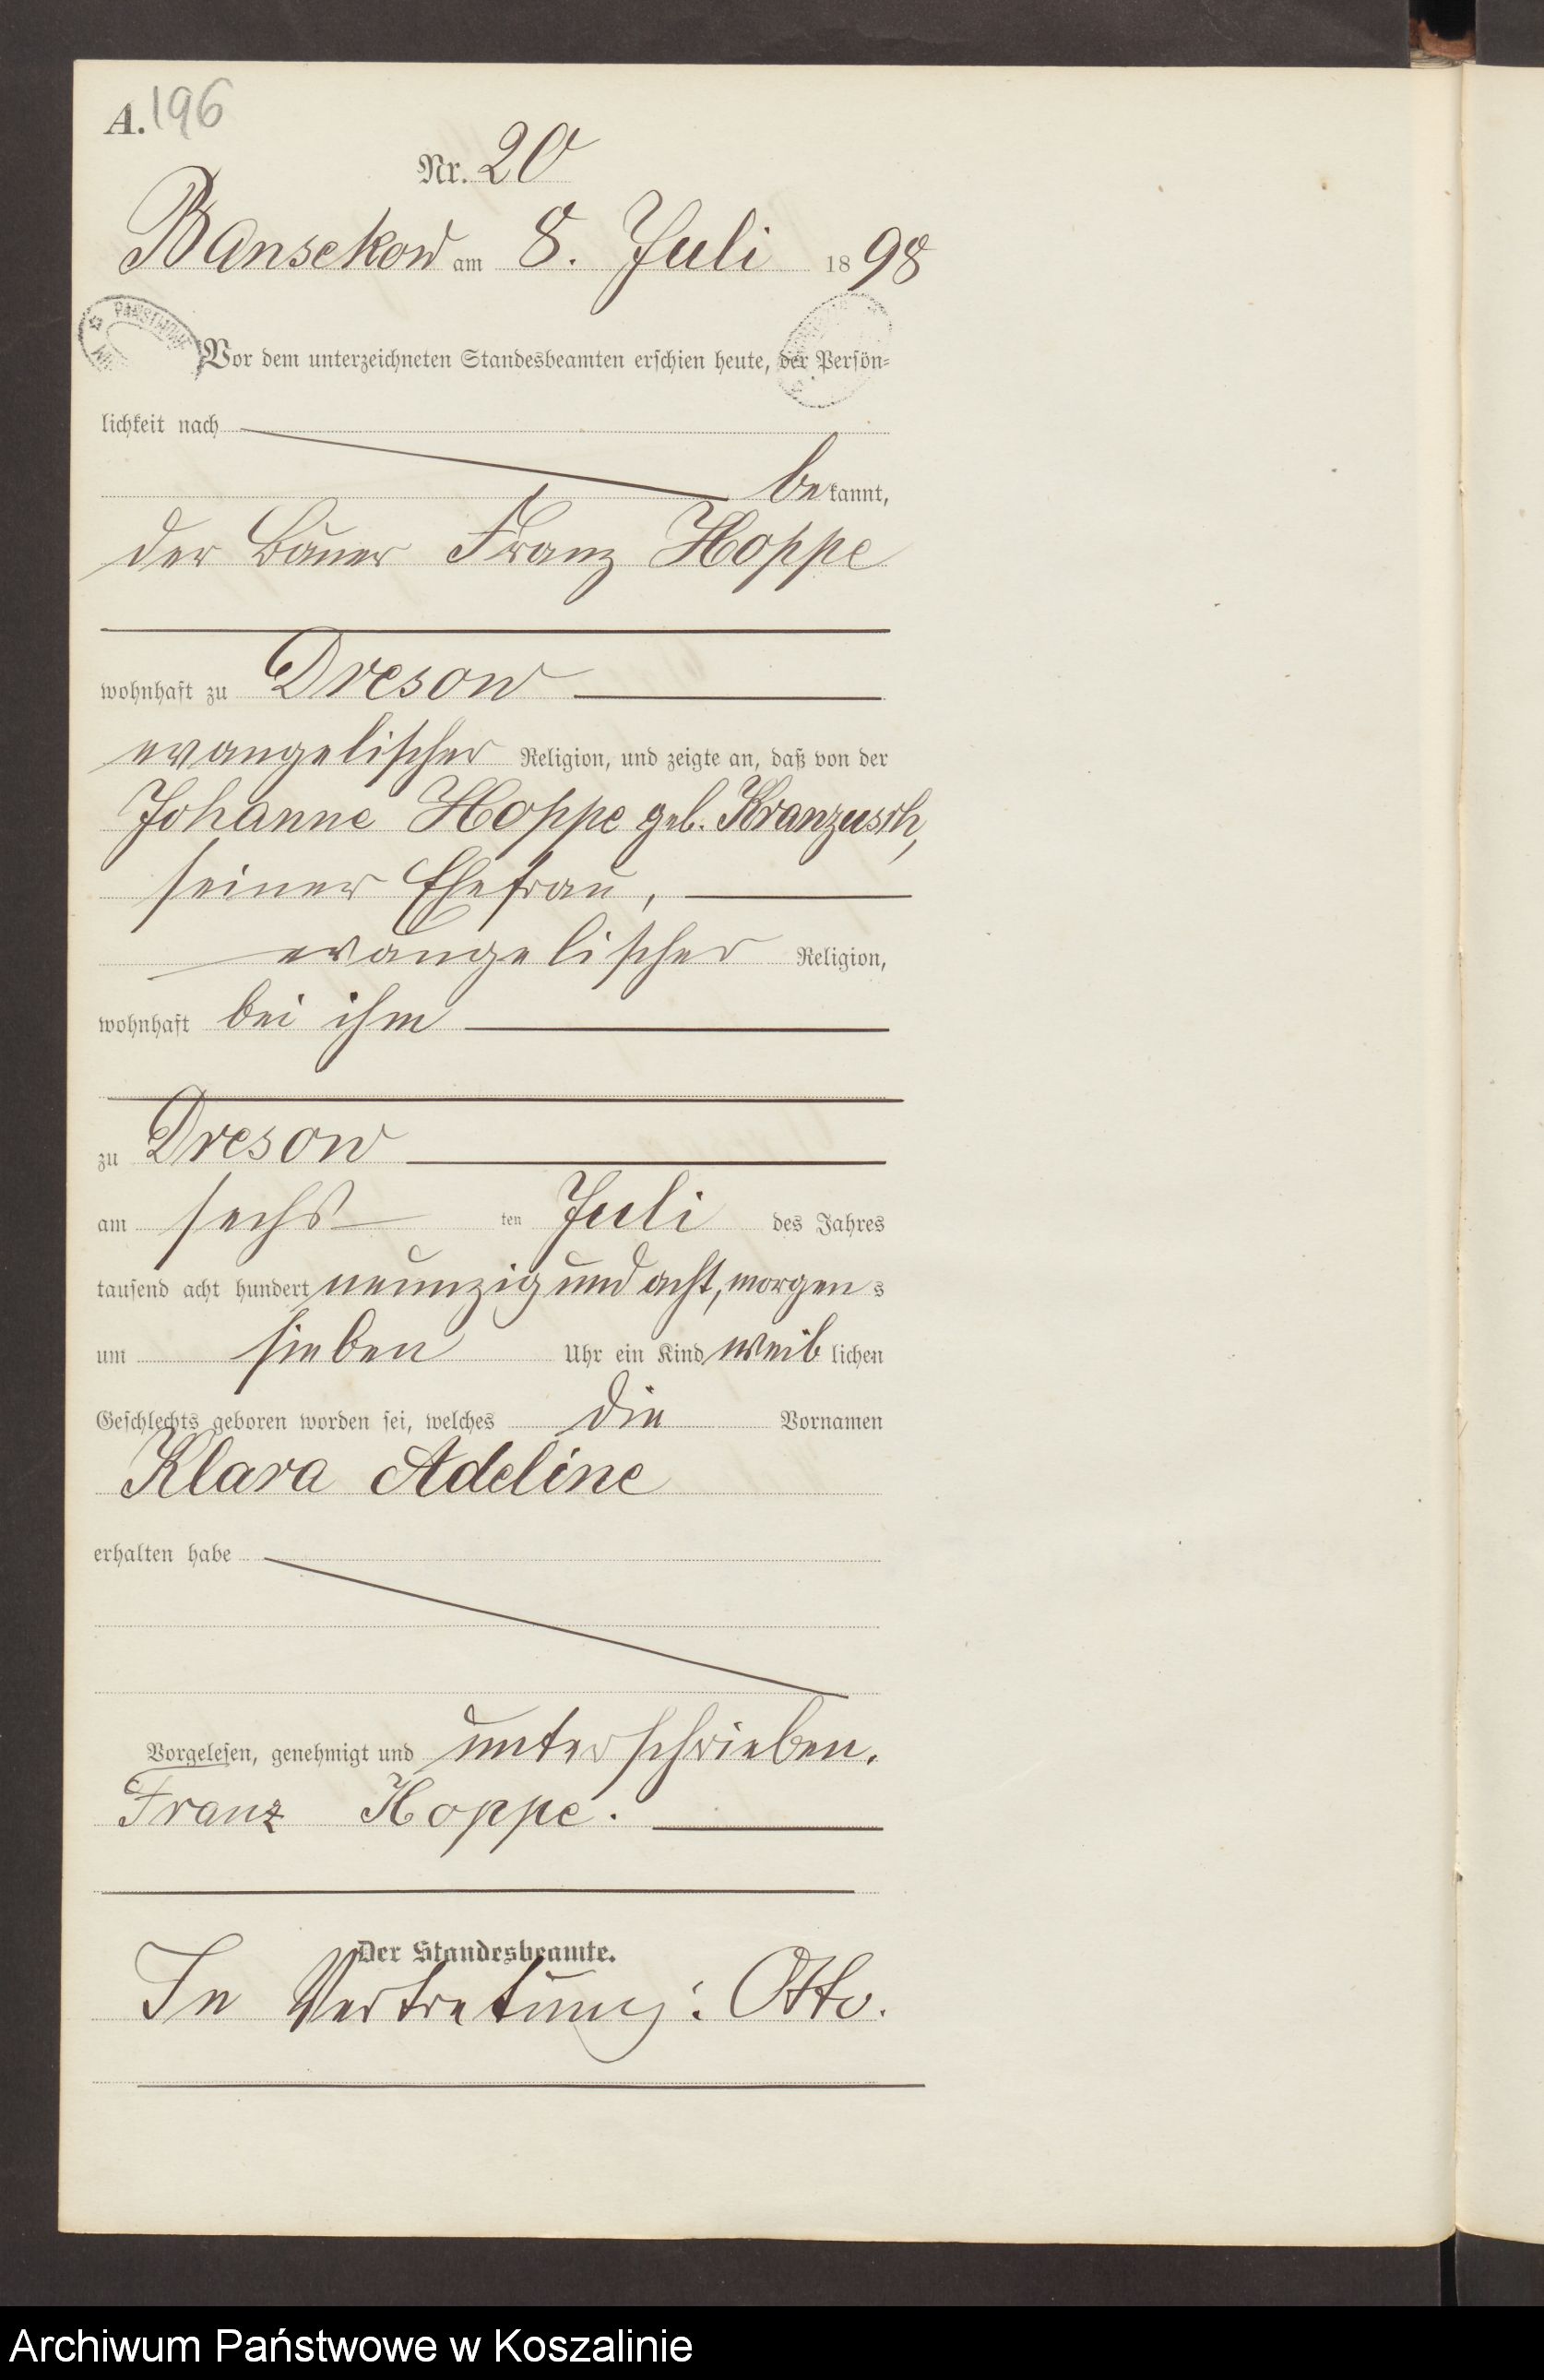 A. 196
Nr. 20
Bansekow am 8. Juli 1898
PAŃSTWOWE
Vor dem unterzeichneten Standesbeamten erschien heute, der Persön-
lichkeit nach
bekannt,
der Bauer Franz Hoppe
wohnhaft zu Dresow
evangelischer Religion, und zeigte an, daß von der
Johanne Hoppe geb. Kranzusch,
seiner Ehefrau,
evangelischer Religion,
wohnhaft bei ihm
zu Dresow
am sechsten Juli des Jahres
tausend acht hundert neunzig und acht, morgens
um sieben Uhr ein Kind weiblichen
Geschlechts geboren worden sei, welches die Vornamen
Klara Adeline
erhalten habe
Vorgelesen, genehmigt und unterschrieben.
Franz Hoppe.
Der Standesbeamte.
In Vertretung: Otto.
Archiwum Państwowe w Koszalinie